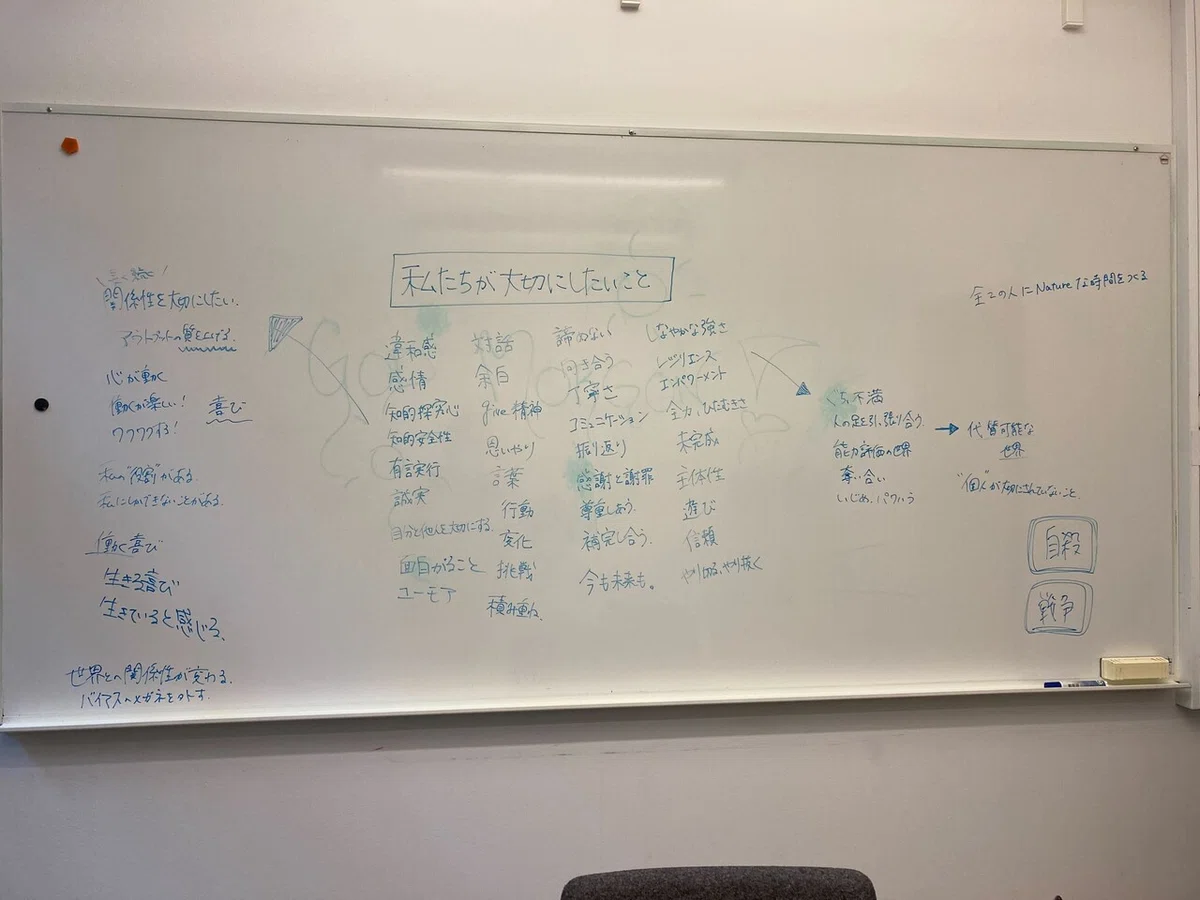 私たちが大切にしたいこと
関係性を大切にしたい。
アウトプットの質を上げる。
心が動く
働くが楽しい!
ワクワクする!
喜び
私の"役割"がある。
私にしかできないことがある。
働く喜び
生きる喜び
生きていると感じる。
世界との関係性が変わる。
バイアスのメガネを外す。
違和感
感情
知的探究心
知的安全性
有言実行
誠実
自分と他人を大切にする。
面白がること
ユーモア
対話
余白
give精神
思いやり
言葉
行動
変化
挑戦
積み重ね。
諦めない
向き合う
丁寧さ
コミュニケーション
振り返り
感謝と謝罪
尊重しあう。
補完し合う。
今も未来も。
しなやかな強さ
レジリエンス
エンパワーメント
全力、ひたむきさ
未完成
主体性
遊び
信頼
やり切る、やり抜く
ぐち不満
人の足を引っ張り合う。
能力評価の世界
奪い合い
いじめ、パワハラ
代替可能な
世界
"個人"が大切にされていないこと。
自殺
戦争
全ての人にNatureな時間をつくる